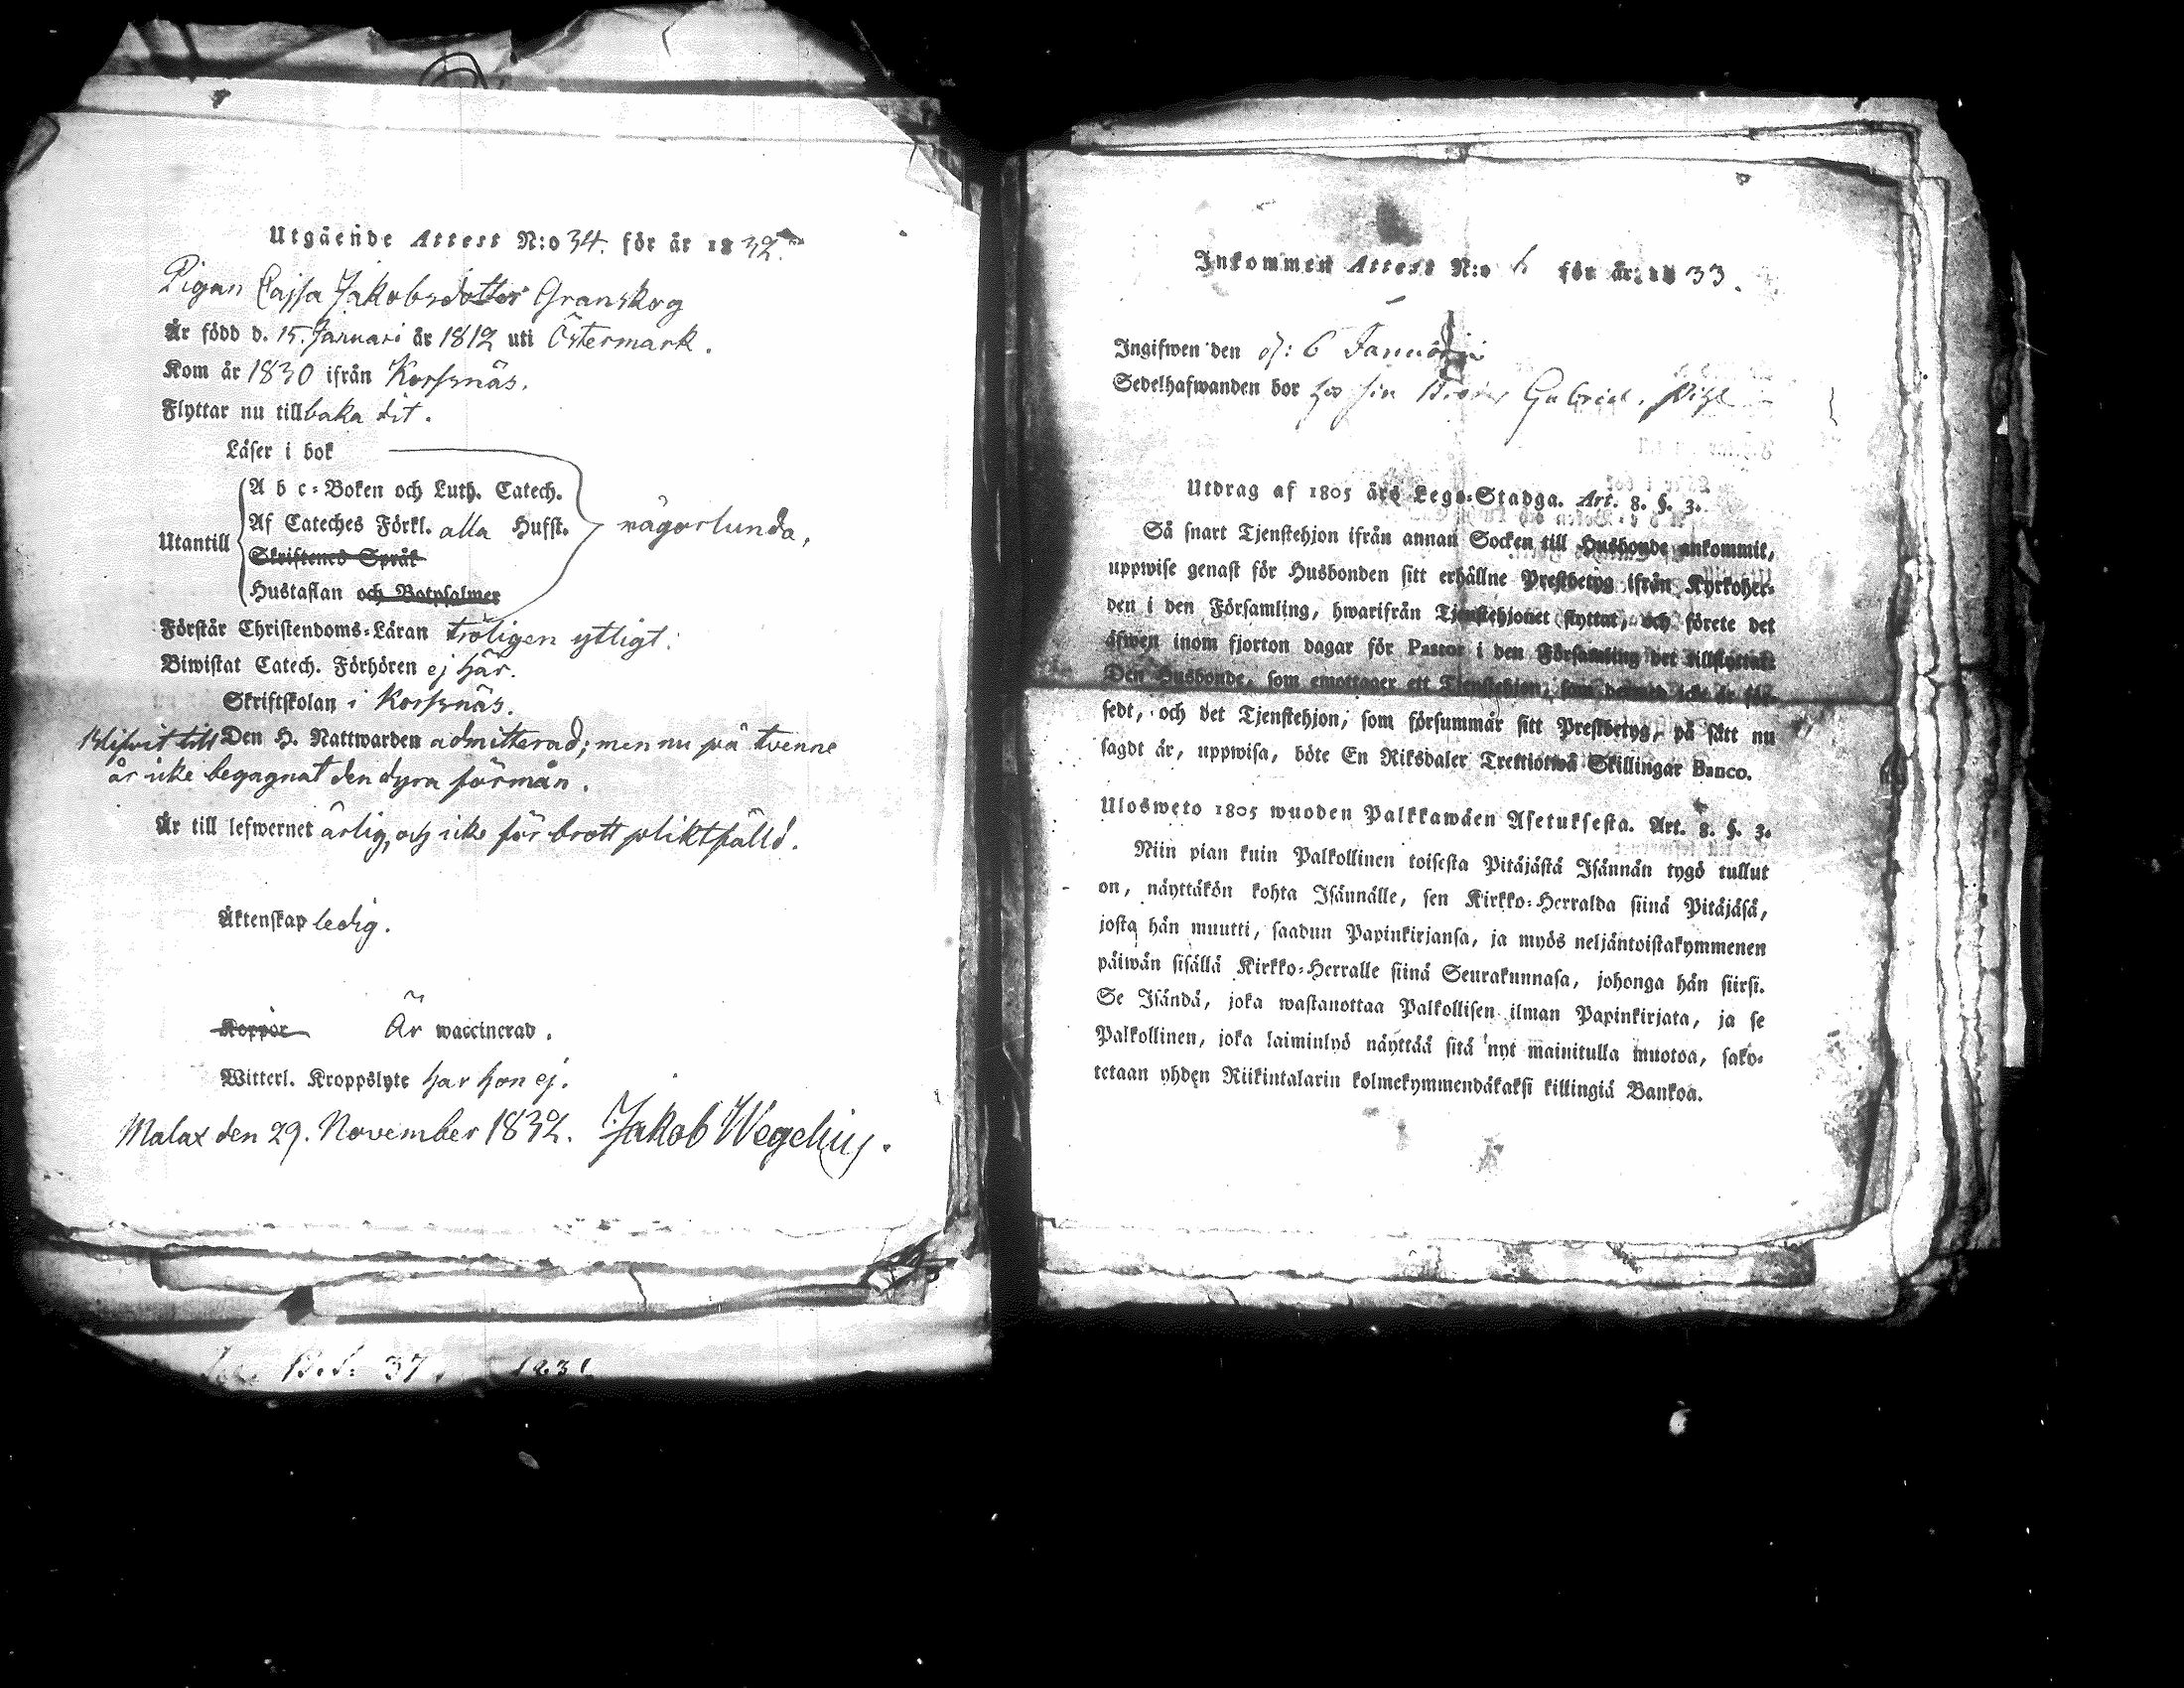 Utgående Attest N:o 34. för år 1832.
Pigan Cajsa Jakobsdotter Granskog
Är född d. 15. Januari år 1812 uti Östermark.
Kom år 1830 ifrån Korssnäs.
Flyttar nu tillbaka dit.
Läser i bok
A b c-Boken och Luth. Catech.
Af Cateches Förkl. alla Hufst.
Utantill någorlunda,
Skriftenes Språk
Hustaflan och Botpsalmer
Förstår Christendoms-Läran troligen ytligt.
Biwistat Catech. Förhören ej här.
Skriftskolan i Korssnäs.
Blifvit till Den H. Nattwarden admitterad; men nu på tvenne
år icke begagnat den dyra förmån.
Är till lefwernet ärlig, och icke för brott pliktfälld.
Äktenskap ledig.
Koppor Är waccinerad.
Witterl. Kroppslyte har hon ej.
Malax den 29. November 1832. Jakob Wegelius.
37. 1831
Inkommen Attest N:o 6 för år 1833.
Ingifwen den d: 6 Januarii
Sedelhafwanden bor hos sin Gabriel
Utdrag af 1805 års Lego-Stadga. Art. 8. §. 3.
Så snart Tjenstehjon ifrån annan Socken till Husbonde ankommit,
uppwise genast för Husbonden sitt erhållne Prestbetyg ifrån Kyrkoher-
den i den Församling, hwarifrån Tjenstehjonet flyttat, och förete det
äfwen inom fjorton dagar för Pastor i den Församling det tillflyttat.
Den Husbonde, som emottager ett Tjenstehjon, som dermed icke är för-
sedt, och det Tjenstehjon, som försummar sitt Prestbetyg, på sätt nu
sagdt är, uppwisa, böte En Riksdaler Trettiotwå Skillingar Banco.
Ulosweto 1805 wuoden Palkkawäen Asetuksesta. Art. 8. §. 3.
Niin pian kuin Palkollinen toisesta Pitäjästä Isännän tygö tullut
on, näyttäkön kohta Isännälle, sen Kirkko-Herralda siinä Pitäjäsä,
josta hän muutti, saadun Papinkirjansa, ja myös neljäntoistakymmenen
päiwän sisällä Kirkko-Herralle siinä Seurakunnasa, johonga hän siirsi.
Se Isändä, joka wastanottaa Palkollisen ilman Papinkirjata, ja se
Palkollinen, joka laiminlyö näyttää sitä nyt mainitulla muotoa, sako-
tetaan yhden Riikintalarin kolmekymmendäkaksi killingiä Bankoa.